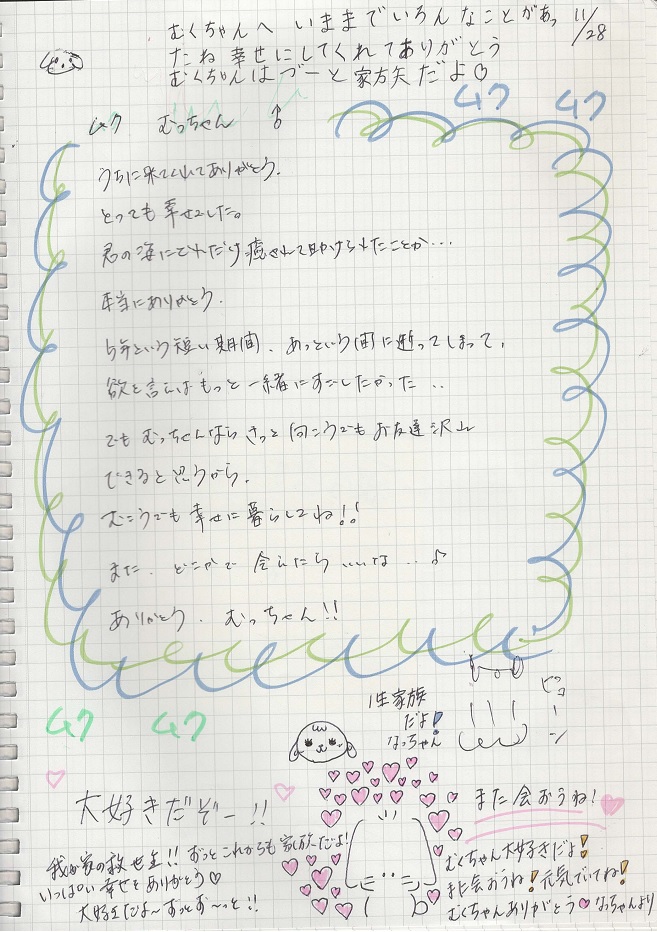 むくちゃんへ いままでいろんなことがあっ
11/28
たね 幸せにしてくれてありがとう
むくちゃんは づーと 家方矢 だよ♡
ムク むっちゃん ♂
ムク ムク
うちに来てくれてありがとう.
とっても幸せでした。
君の海にどれだけ癒されて助けられたことか…
本当にありがとう.
5年という短い期間、あっという間に逝ってしまって、
欲を言えばもっと一緒にすごしたかった‥
でも むっちゃんなら きっと 向こうでも お友達沢山
できると思うから.
むこうでも 幸せに 暮らしてね!!
また、どこかで 会えたら いいな…♪
ありがとう、むっちゃん!!
ムク ムク
ピョーン
1生家族
だよ!
なっちゃん
大好きだぞー!!
また会おうね!
我が家の救世主!! ずっとこれからも家族だよ!
いっぱい幸せをありがとう♡
大好きだよ〜ずっとず〜っと!!
むくちゃん大好きだよ!
また会おうね!元気でいてね!
むくちゃんありがとう♡なっちゃんより